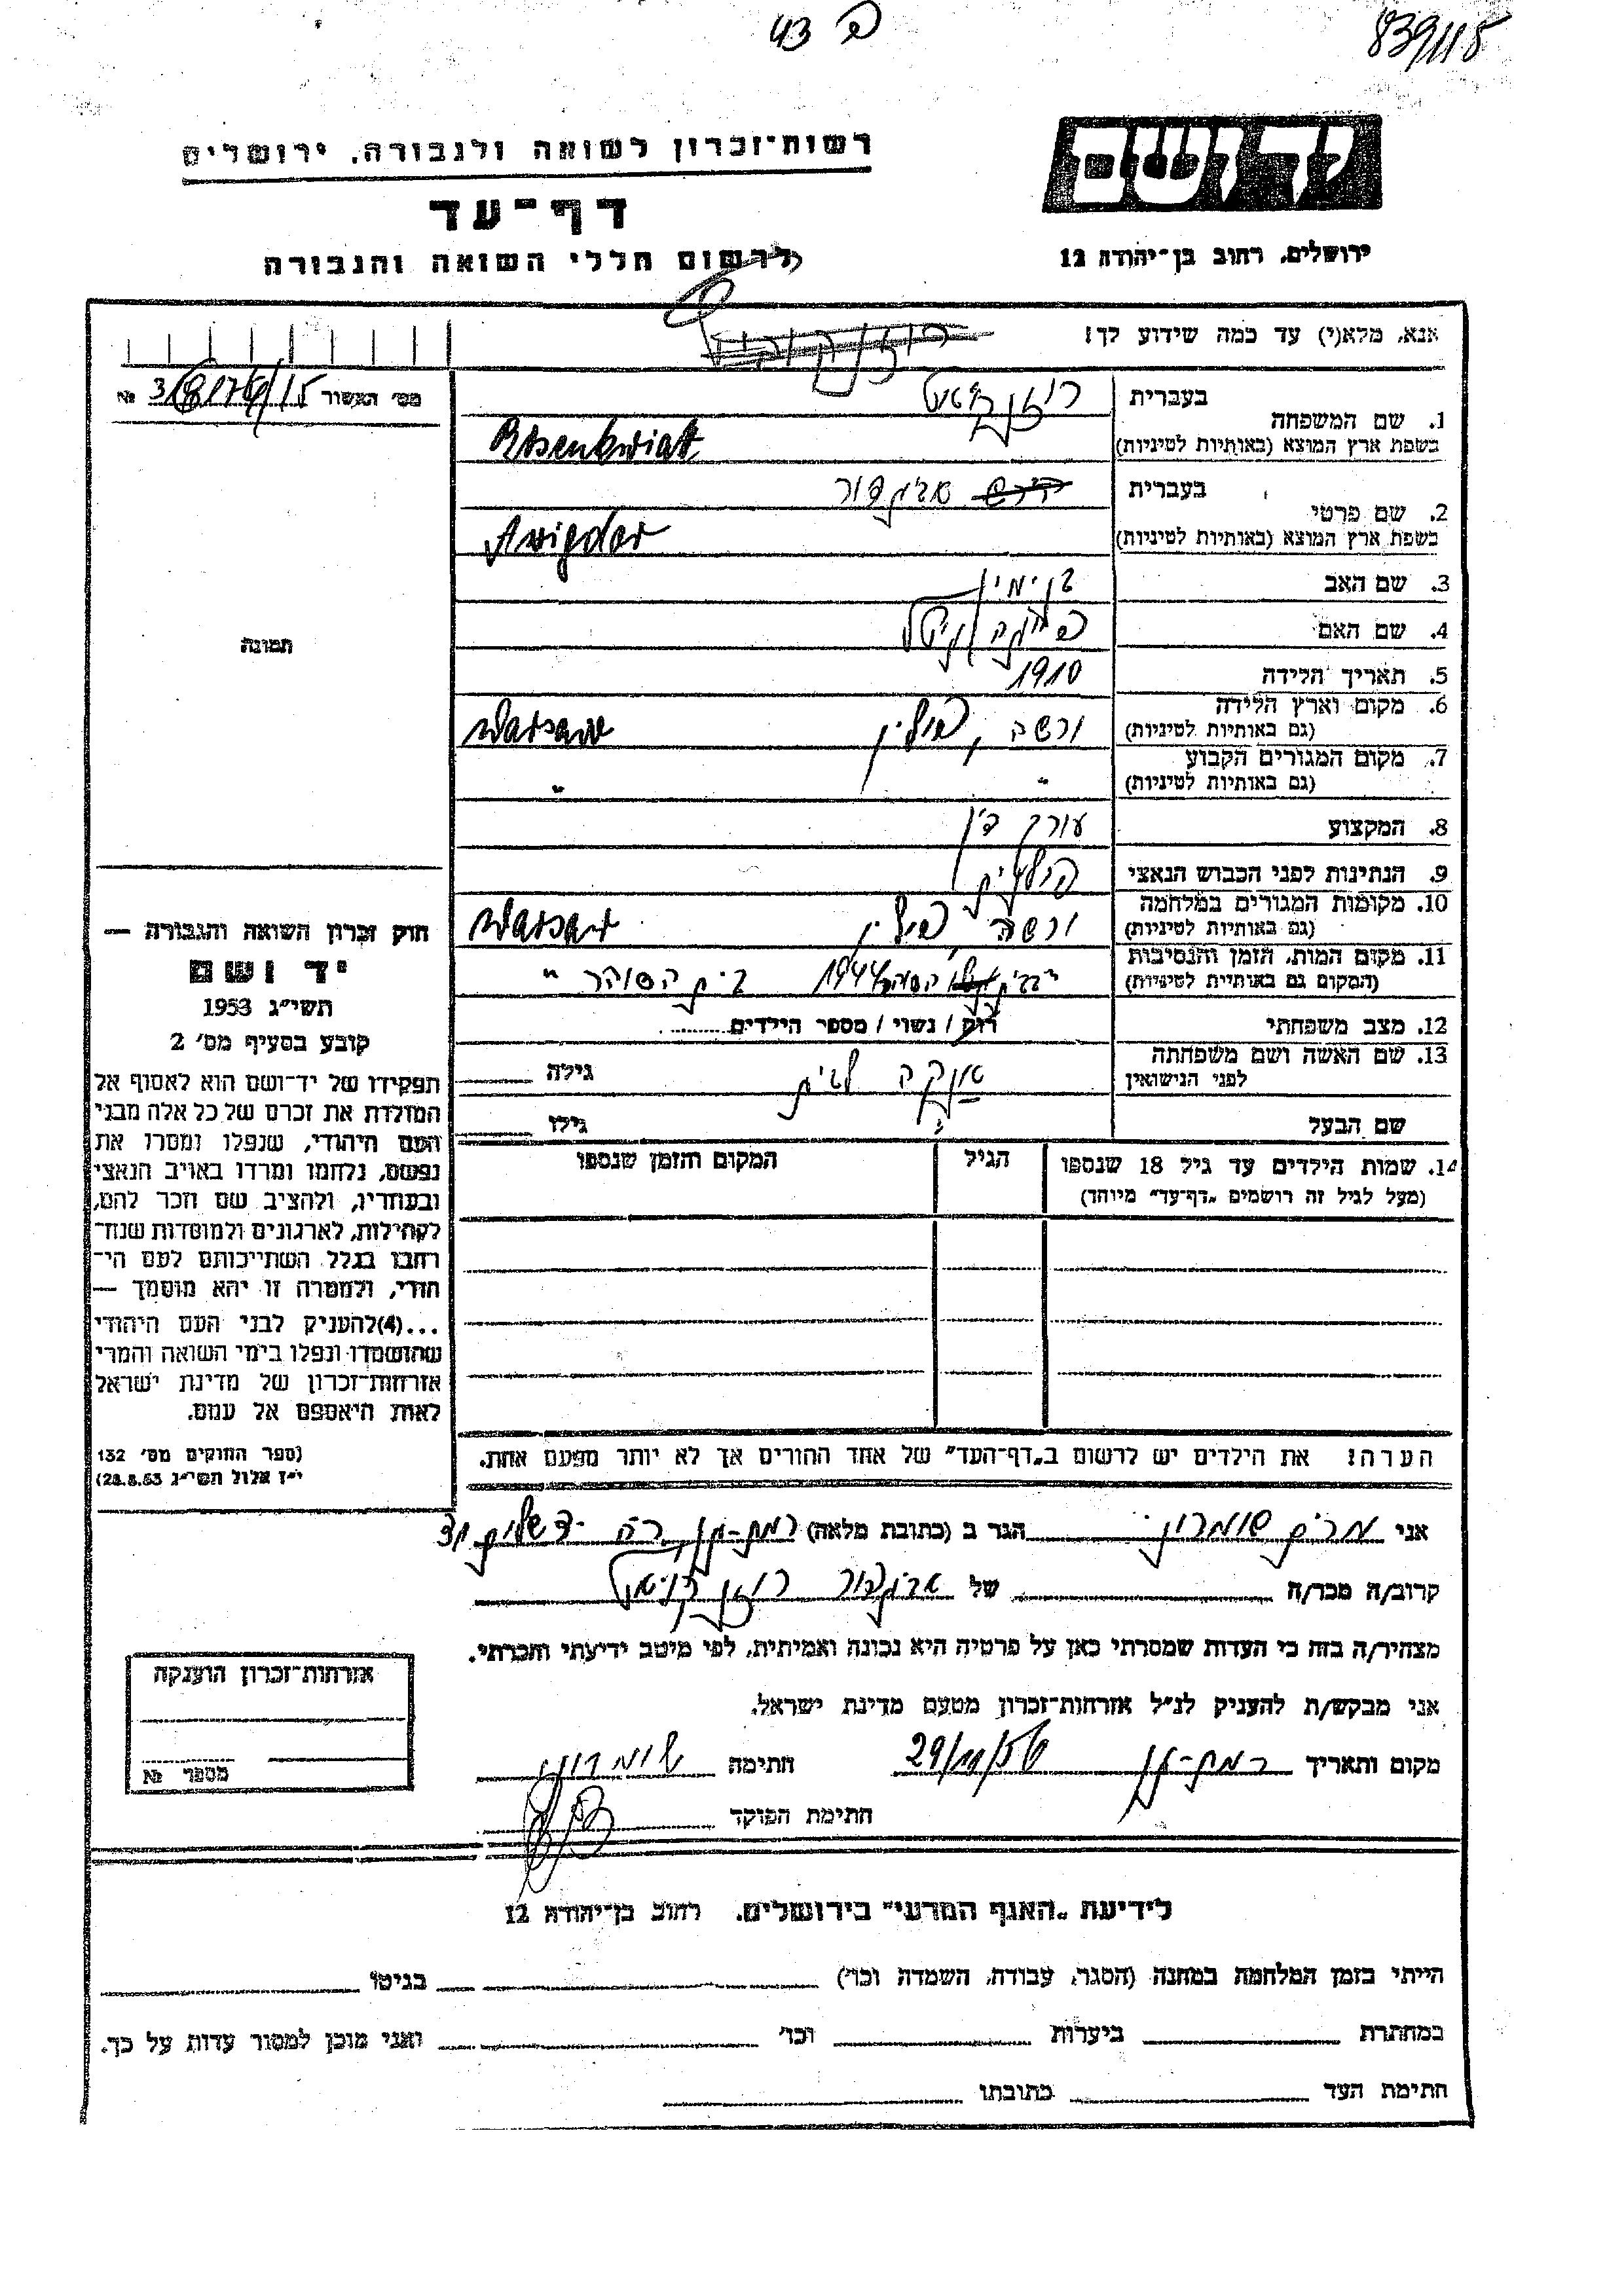 פ 43
839/115
יד ושם
ירושלים, רחוב בן־יהודה 12
רשות־זכרון לשואה ולגבורה, ירושלים
דף־עד
לרשום חללי השואה והגבורה
אנא, מלא(י) עד כמה שידוע לך!
מס' האשור №
תמונה
1. שם המשפחה
בעברית
בשפת ארץ המוצא (באותיות לטיניות)
Rosenkwiat
2. שם פרטי
בעברית אביגדור
בשפת ארץ המוצא (באותיות לטיניות)
Awigdor
3. שם האב בנימין
4. שם האם
5. תאריך הלידה 1910
6. מקום וארץ הלידה
(גם באותיות לטיניות)
ורשה, פולין Warsaw
7. מקום המגורים הקבוע
(גם באותיות לטיניות)
" "
8. המקצוע עורך דין
9. הנתינות לפני הכבוש הנאצי פולנית
10. מקומות המגורים במלחמה
(גם באותיות לטיניות)
ורשה, פולין Warsaw
11. מקום המות, הזמן והנסיבות
(המקום גם באותיות לטיניות)
1944 בית הסוהר "
12. מצב משפחתי
רוק / נשוי / מספר הילדים
13. שם האשה ושם משפחתה
לפני הנישואין
גילה
שם הבעל
גילו
14. שמות הילדים עד גיל 18 שנספו
(מעל לגיל זה רושמים „דף־עד" מיוחד)
הגיל
המקום והזמן שנספו
חוק זכרון השואה והגבורה —
יד ושם
תשי"ג 1953
קובע בסעיף מס' 2
תפקידו של יד־ושם הוא לאסוף אל
המולדת את זכרם של כל אלה מבני
העם היהודי, שנפלו ומסרו את
נפשם, נלחמו ומרדו באויב הנאצי
ובעוזריו, ולהציב שם וזכר להם,
לקהילות, לארגונים ולמוסדות שנח־
רבו בגלל השתייכותם לעם הי־
הודי, ולמטרה זו יהא מוסמך —
...(4)להעניק לבני העם היהודי
שהושמדו ונפלו בימי השואה והמרי
אזרחות־זכרון של מדינת ישראל
לאות היאספם אל עמם.
(ספר החוקים מס' 132
י"ז אלול תשי"ג 28.8.53)
הערה: את הילדים יש לרשום ב„דף־העד" של אחד ההורים אך לא יותר מפעם אחת.
אני מרים שומרון הגר ב (כתובת מלאה) רמת-גן, רח' ירושלים 31
קרוב/ה מכר/ה של אביגדור רוזנקויאט
מצהיר/ה בזה כי העדות שמסרתי כאן על פרטיה היא נכונה ואמיתית, לפי מיטב ידיעתי והכרתי.
אני מבקש/ת להעניק לנ"ל אזרחות־זכרון מטעם מדינת ישראל.
מקום ותאריך רמת-גן 29/10/56 חתימה שומרון
חתימת הפוקד
אזרחות־זכרון הוענקה
מספר №
לידיעת „האגף המדעי" בירושלים, רחוב בן־יהודה 12
הייתי בזמן המלחמה במחנה (הסגר, עבודה, השמדה וכו') בגיטו
במחתרת ביערות וכו' ואני מוכן למסור עדות על כך.
חתימת העד כתובתו